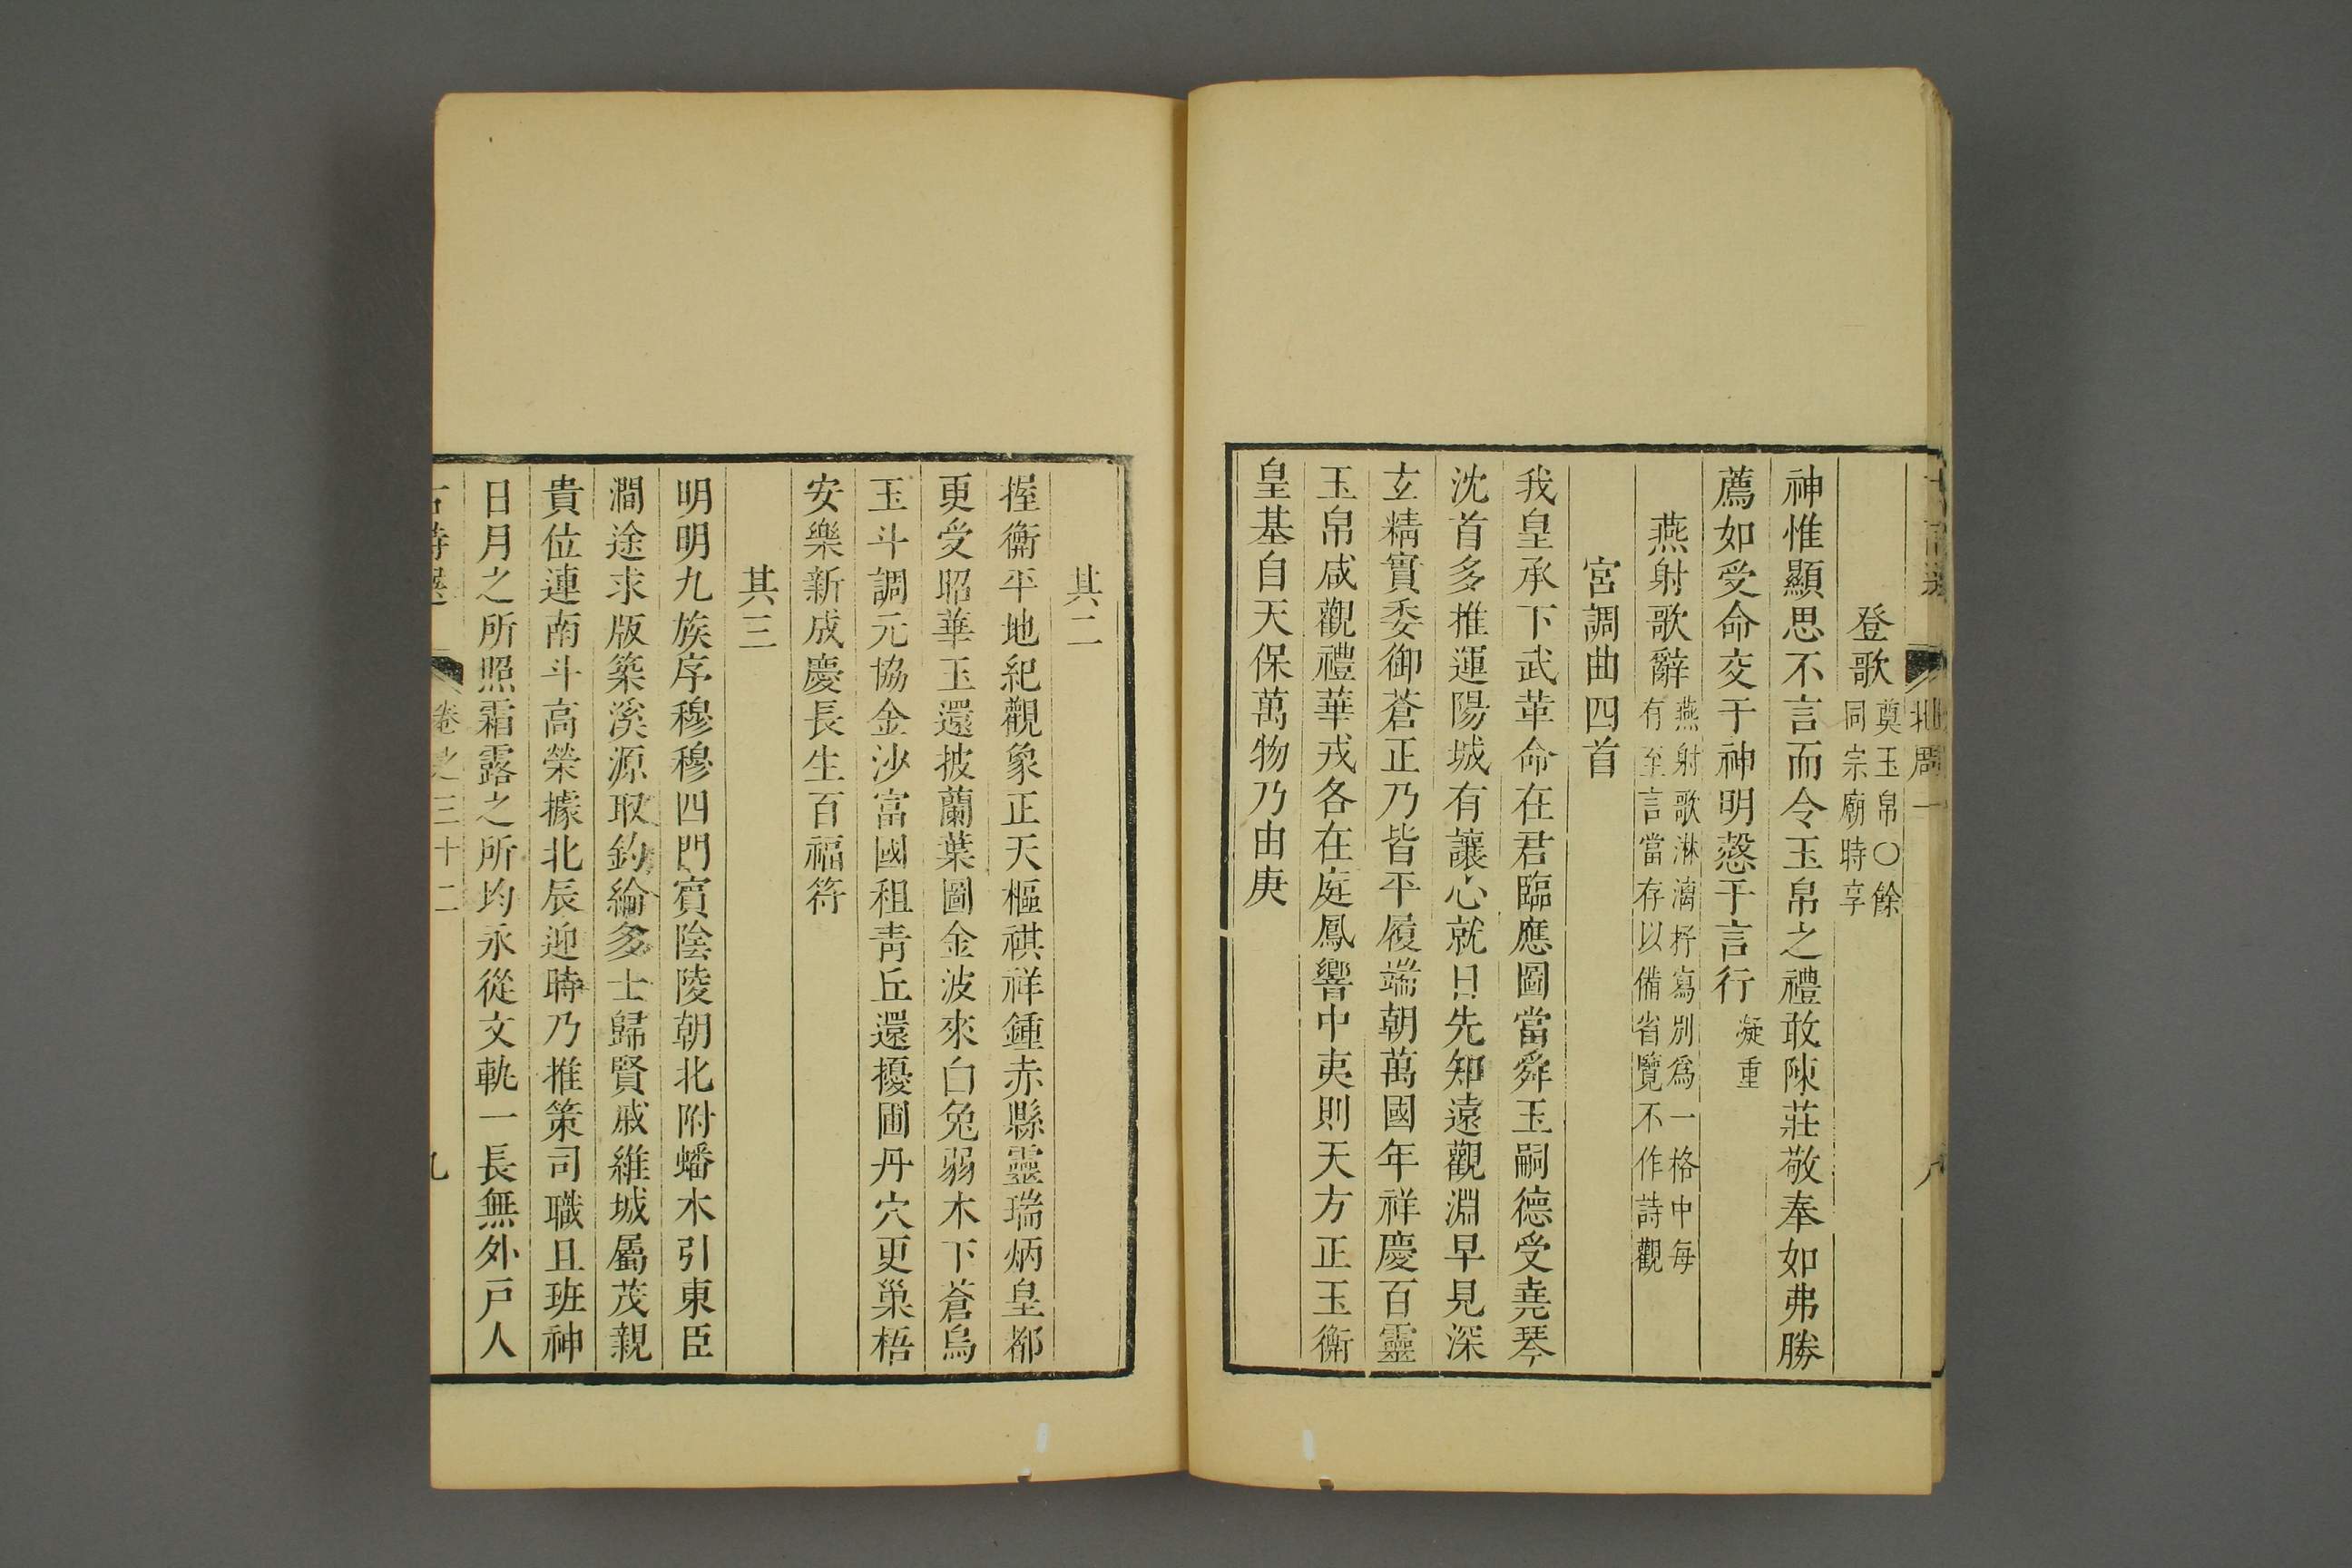 北周一
登歌奠玉帛○餘同宗廟時享
神惟顯思不言而令玉帛之禮敢陳莊敬奉如弗勝
薦如受命交于神明慤于言行凝重
燕射歌辭燕射歌淋漓抒寫別爲一格中每有至言當存以備省覽不作詩觀
宮調曲四首
我皇承下武革命在君臨應圖當舜玉嗣德受堯琴
沈首多推運陽城有讓心就日先知遠觀淵早見深
玄精實委御蒼正乃皆平履端朝萬國年祥慶百靈
玉帛咸觀禮華戎各在庭鳳響中夷則天方正玉衡
皇基自天保萬物乃由庚
其二
握衡平地紀觀象正天樞祺祥鍾赤縣靈瑞炳皇都
更受昭華玉還披蘭葉圖金波來白兔弱木下蒼烏
玉斗調元協金沙富國租靑丘還擾圃丹穴更巢梧
安樂新成慶長生百福符
其三
明明九族序穆穆四門賓陰陵朝北附蟠木引東臣
澗途求版築溪源取釣綸多士歸賢戚維城屬茂親
貴位連南斗高榮據北辰迎時乃推策司職且班神
日月之所照霜露之所均永從文軌一長無外戸人
古詩選 卷之三十二 九